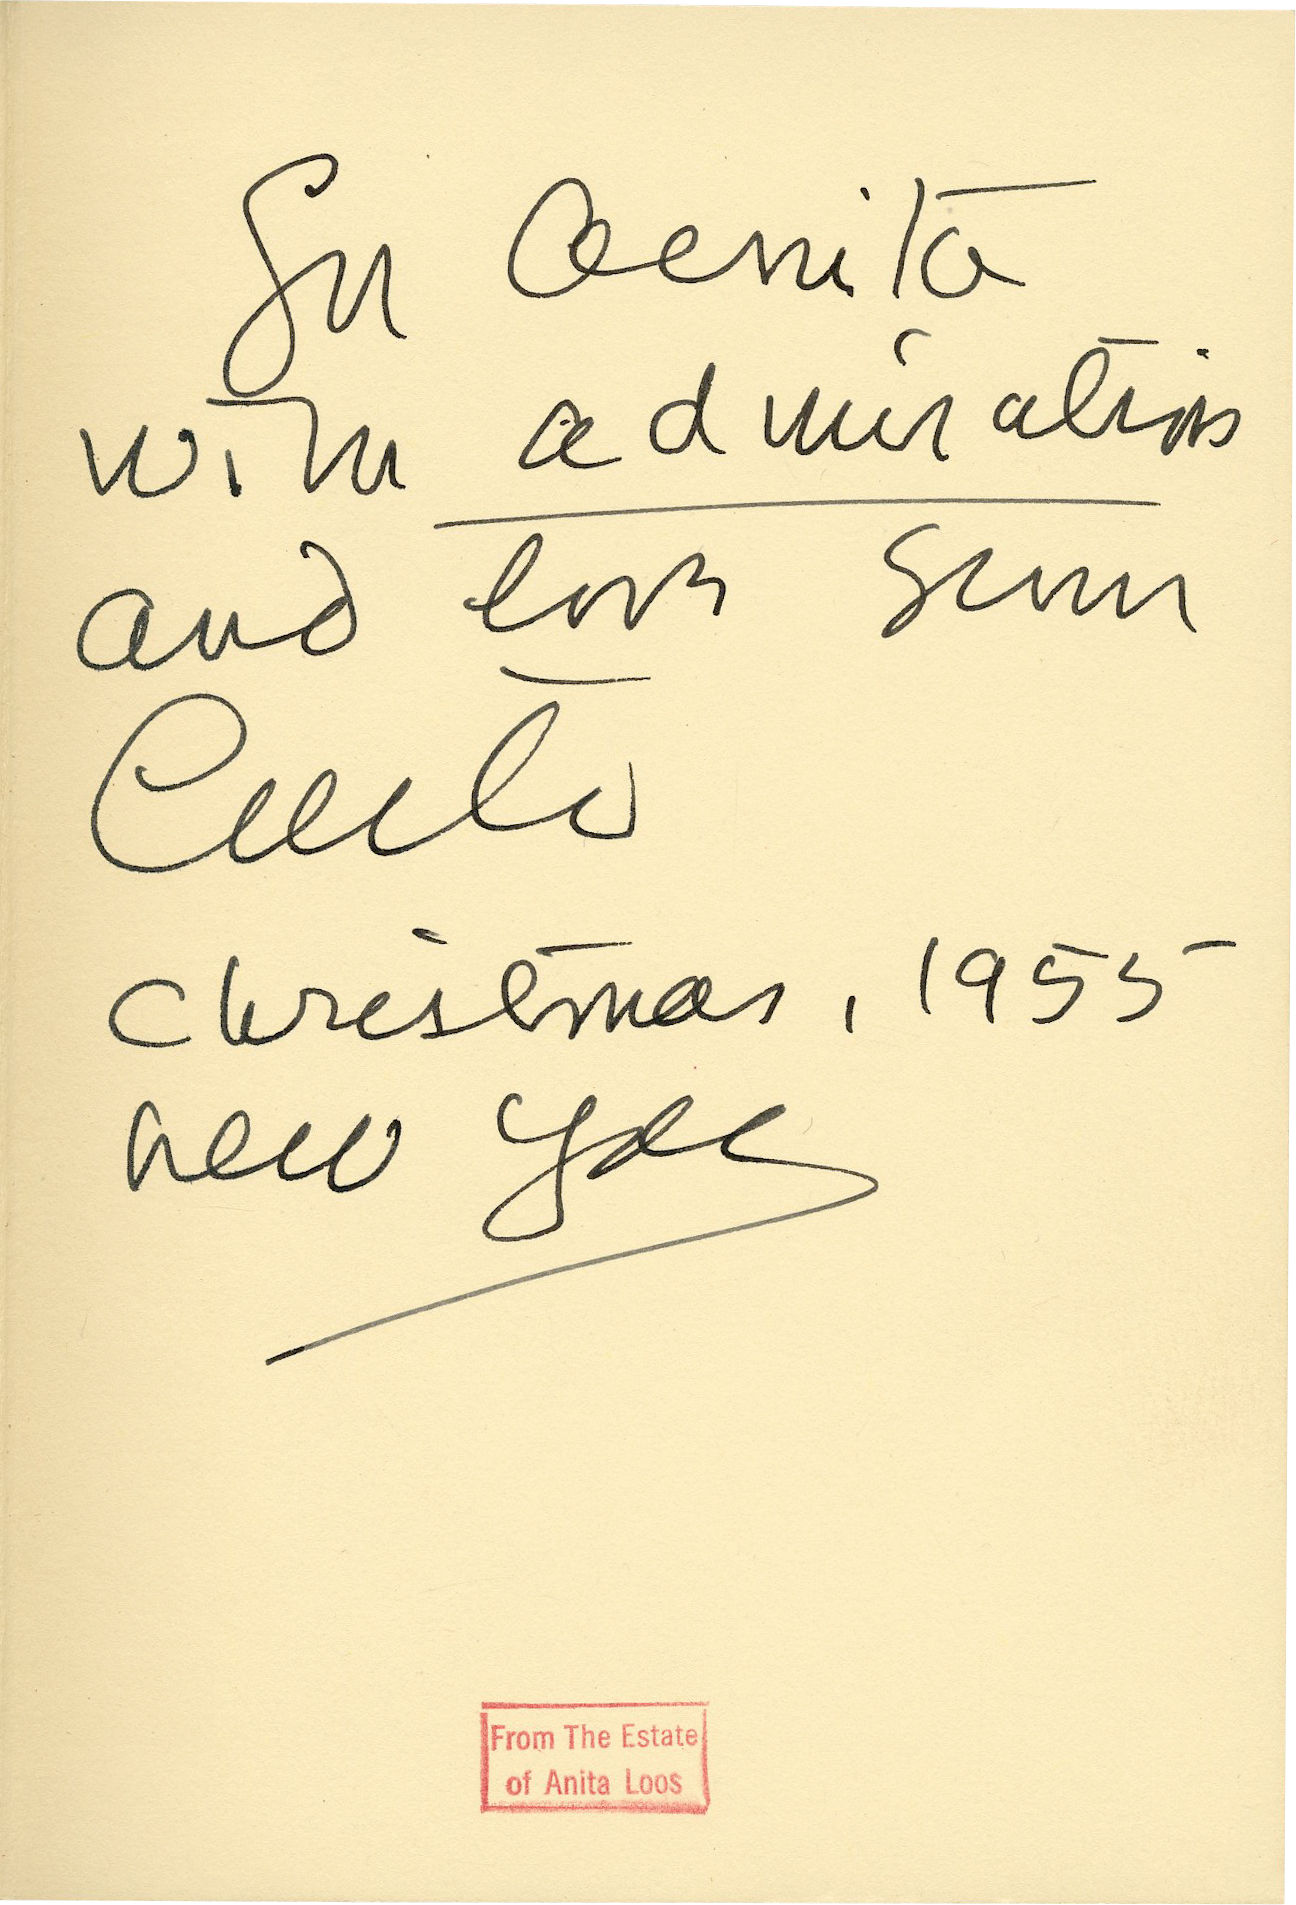 For Anita
with admiration
and love from
Christmas, 1955
New York
From The Estate
of Anita Loos